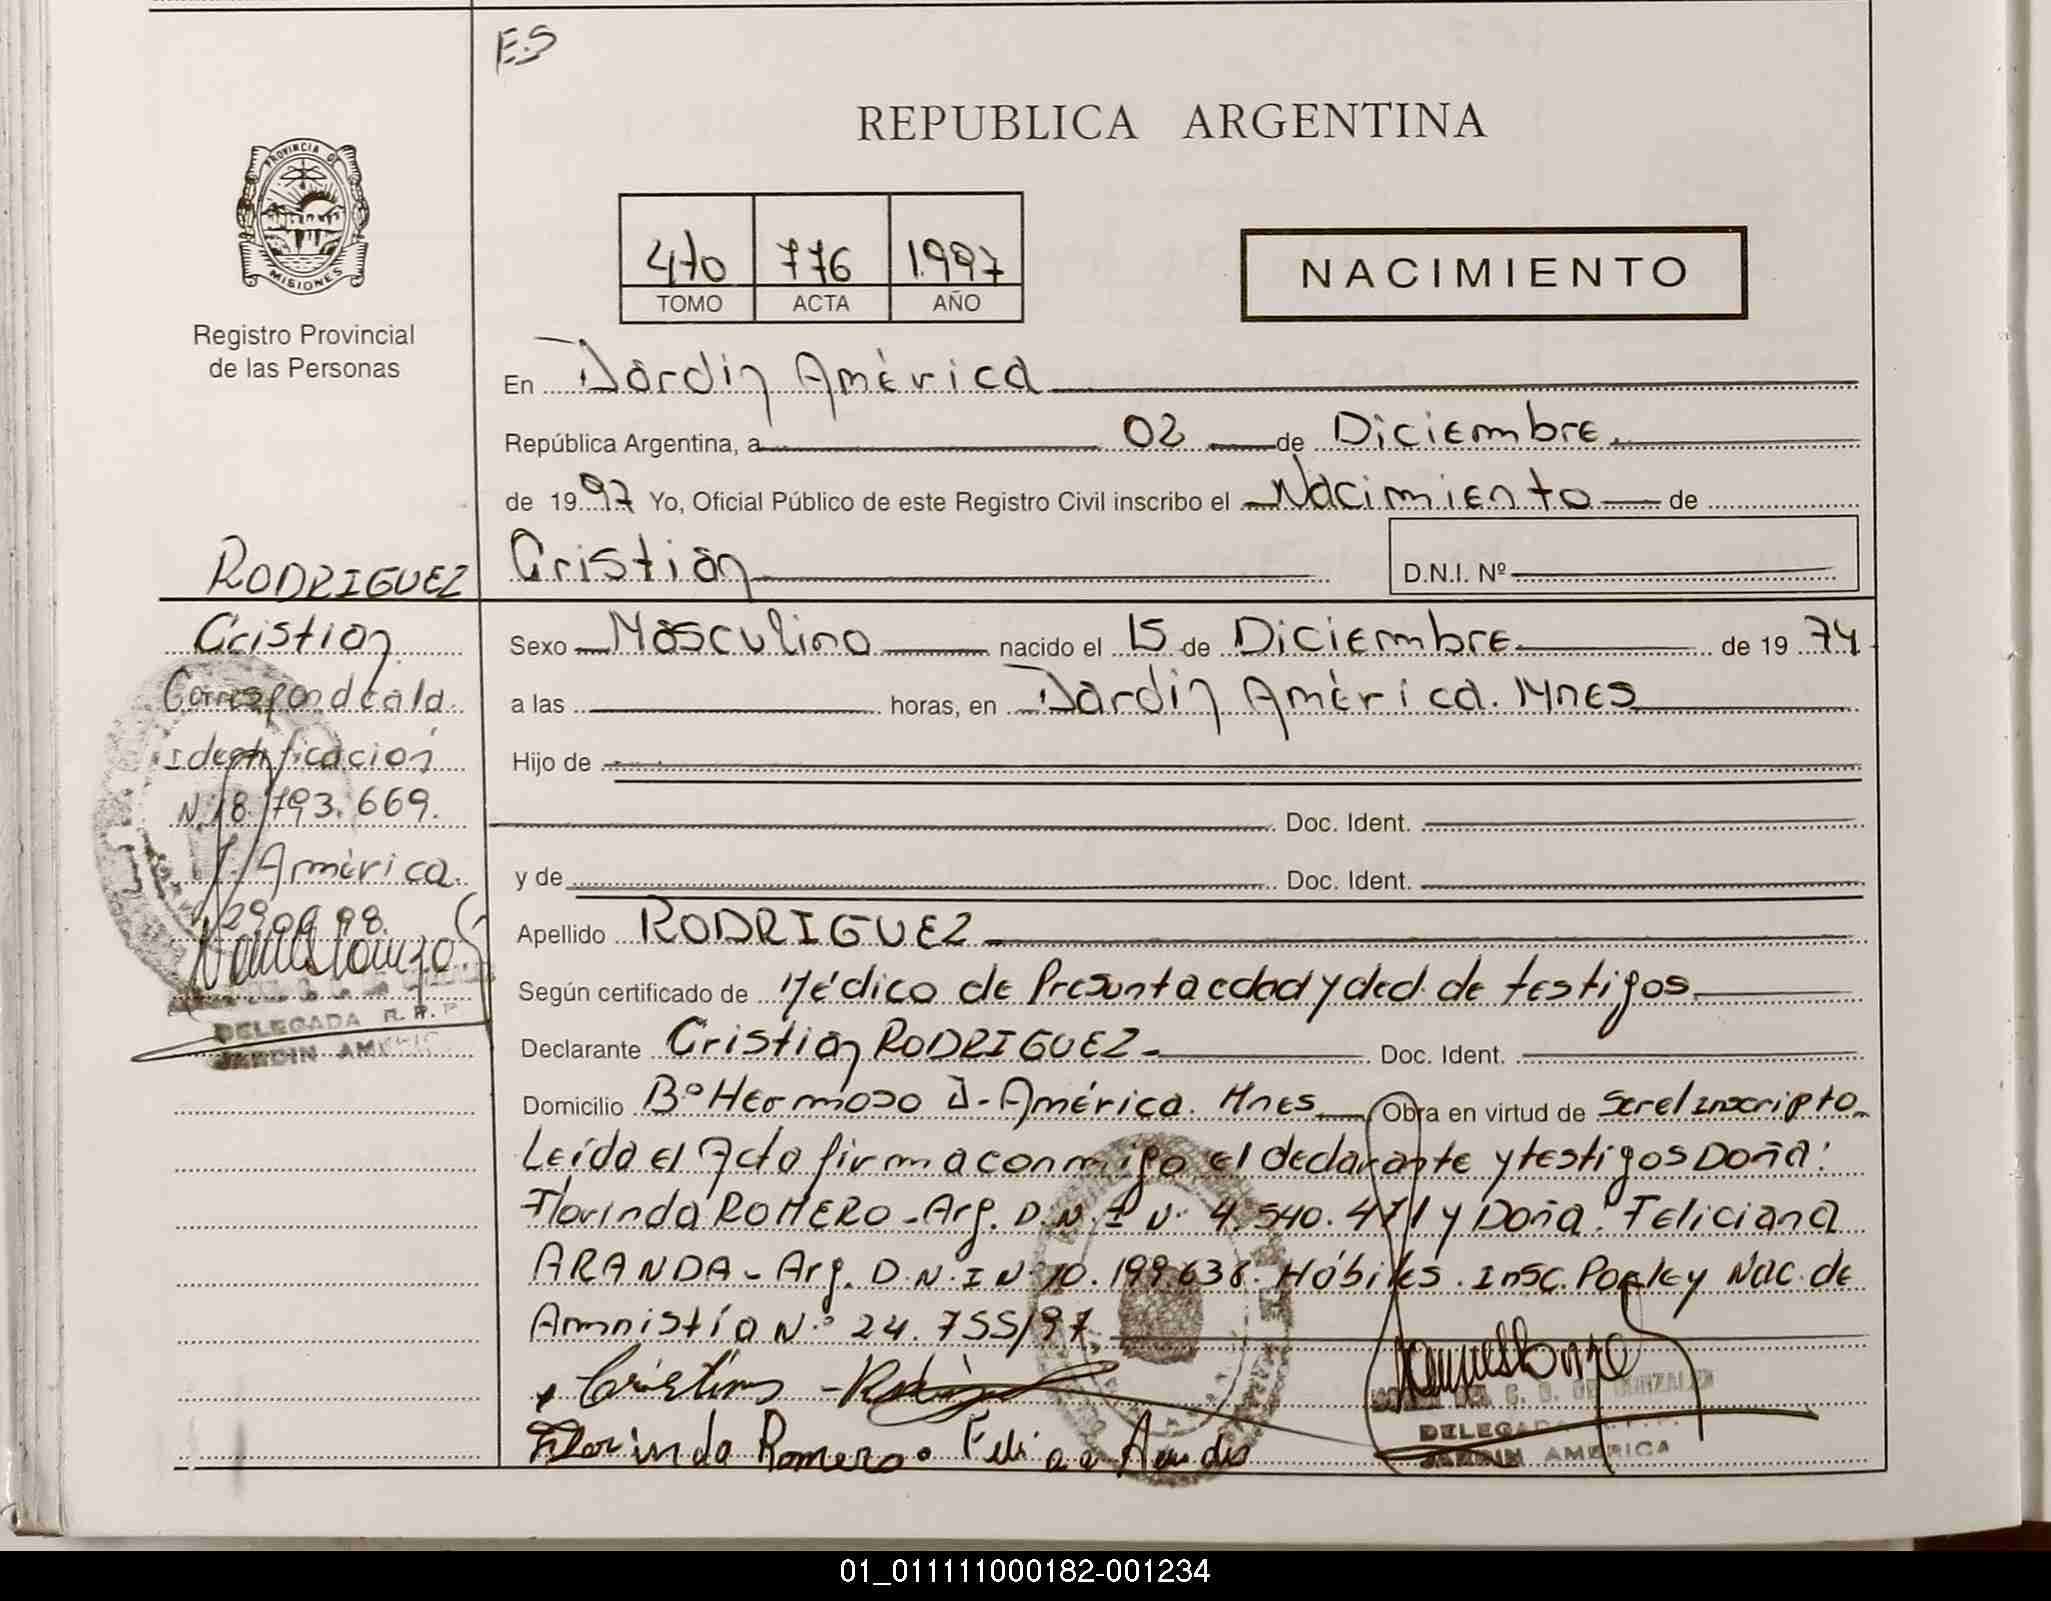 E.S
REPUBLICA ARGENTINA
PROVINCIA DE
MISIONES
470 776 1997
TOMO ACTA AÑO
NACIMIENTO
Registro Provincial
de las Personas
En Jardín América
República Argentina, a 02 de Diciembre
de 1997 Yo, Oficial Público de este Registro Civil inscribo el Nacimiento de
Cristian D.N.I. Nº
RODRIGUEZ
Cristian
Corresponde a la
Identificación
N. 18.793.669.
J. América.
29 09 98.
DELEGADA R. P. P
JARDIN AMERIC
Sexo Masculino nacido el 15 de Diciembre de 1974
a las horas, en Jardín América. Mnes
Hijo de
Doc. Ident.
y de Doc. Ident.
Apellido RODRIGUEZ
Según certificado de Médico de Presunta edad y decl. de testigos
Declarante Cristian RODRIGUEZ Doc. Ident.
Domicilio Bº Hermoso J. América. Mnes Obra en virtud de Ser el inscripto
Leída el Acta firma conmigo el declarante y testigos Doña:
Florinda ROMERO - Arg. D.N.I Nº 4.540.471 y Doña: Feliciana
ARANDA - Arg. D.N.I Nº 10.199.638. Hábiles. Insc. Por Ley Nac. de
Amnistía Nº 24.755/97
Cristian
Florinda Romero
G. D. DE GONZALEZ
DELEGADA
JARDIN AMERICA
01_011111000182-001234